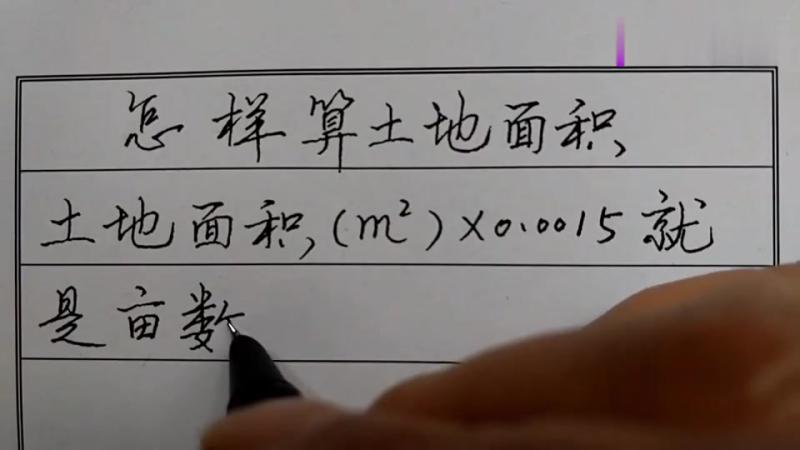 怎样算土地面积
土地面积(m²)×0.0015就
是亩数